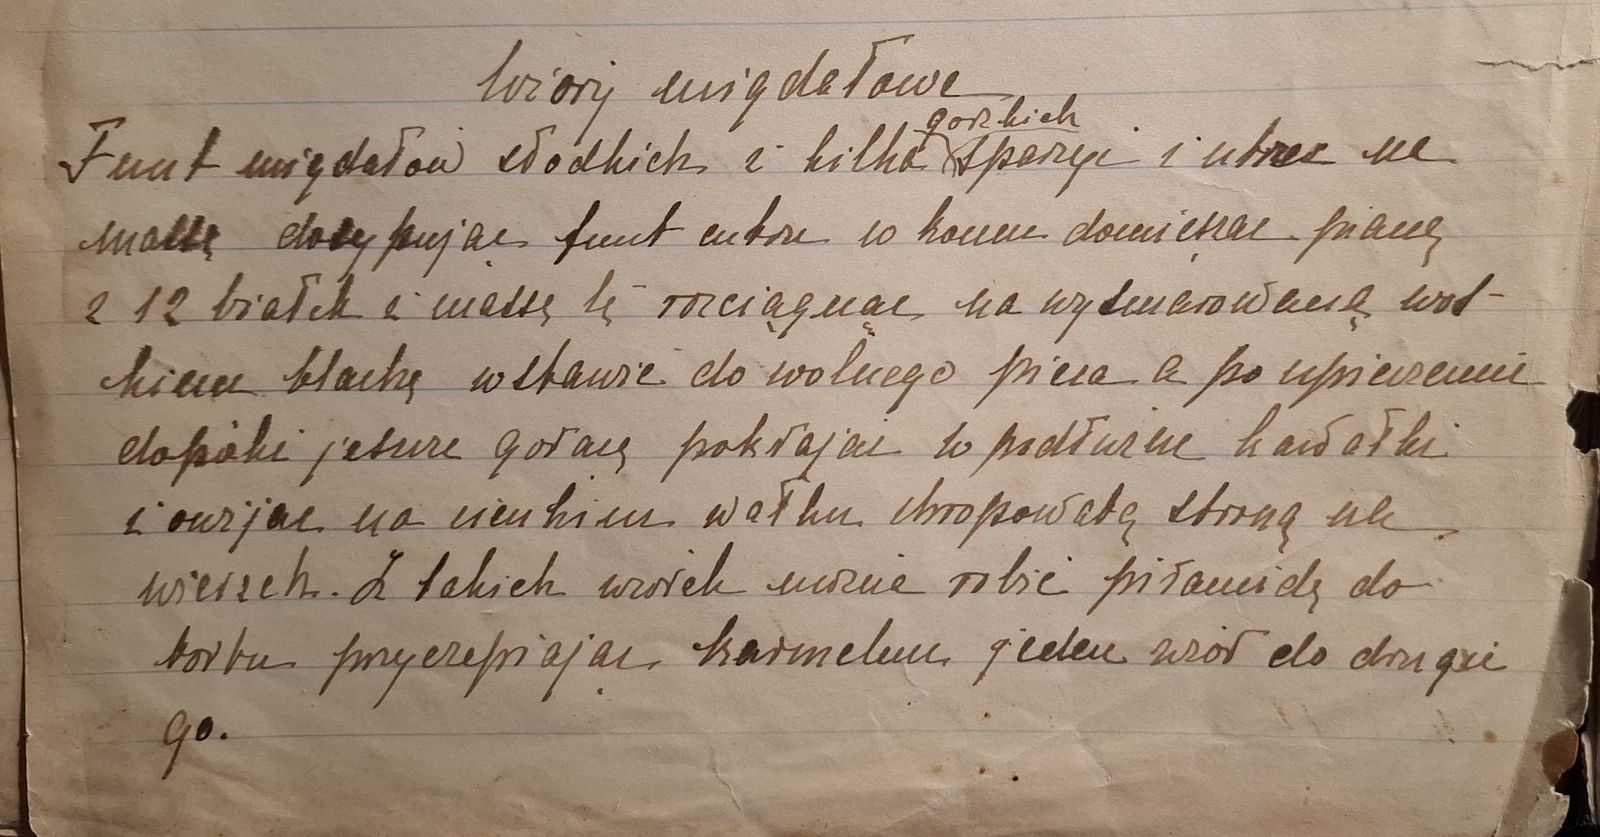 Wióry migdałowe
gorzkich
Funt migdałów słodkich i kilka sparzyć i utrzec na
massę dosypując funt cukru w koncu domięszac pianą
z 12 białek i massę tę rozciągnąc na wysmarowaną wos-
kiem blachę wstawić do wolnego pieca a po upieczeniu
dopóki jeszcze gorącę pokrajać w podłużne kawałki
i owijac na cienkim wałku chropowatą stroną na
wierzch. Z takich wiórek można robić piramidę do
tortu przyczepiając karmelem jeden wiór do drugie
go.